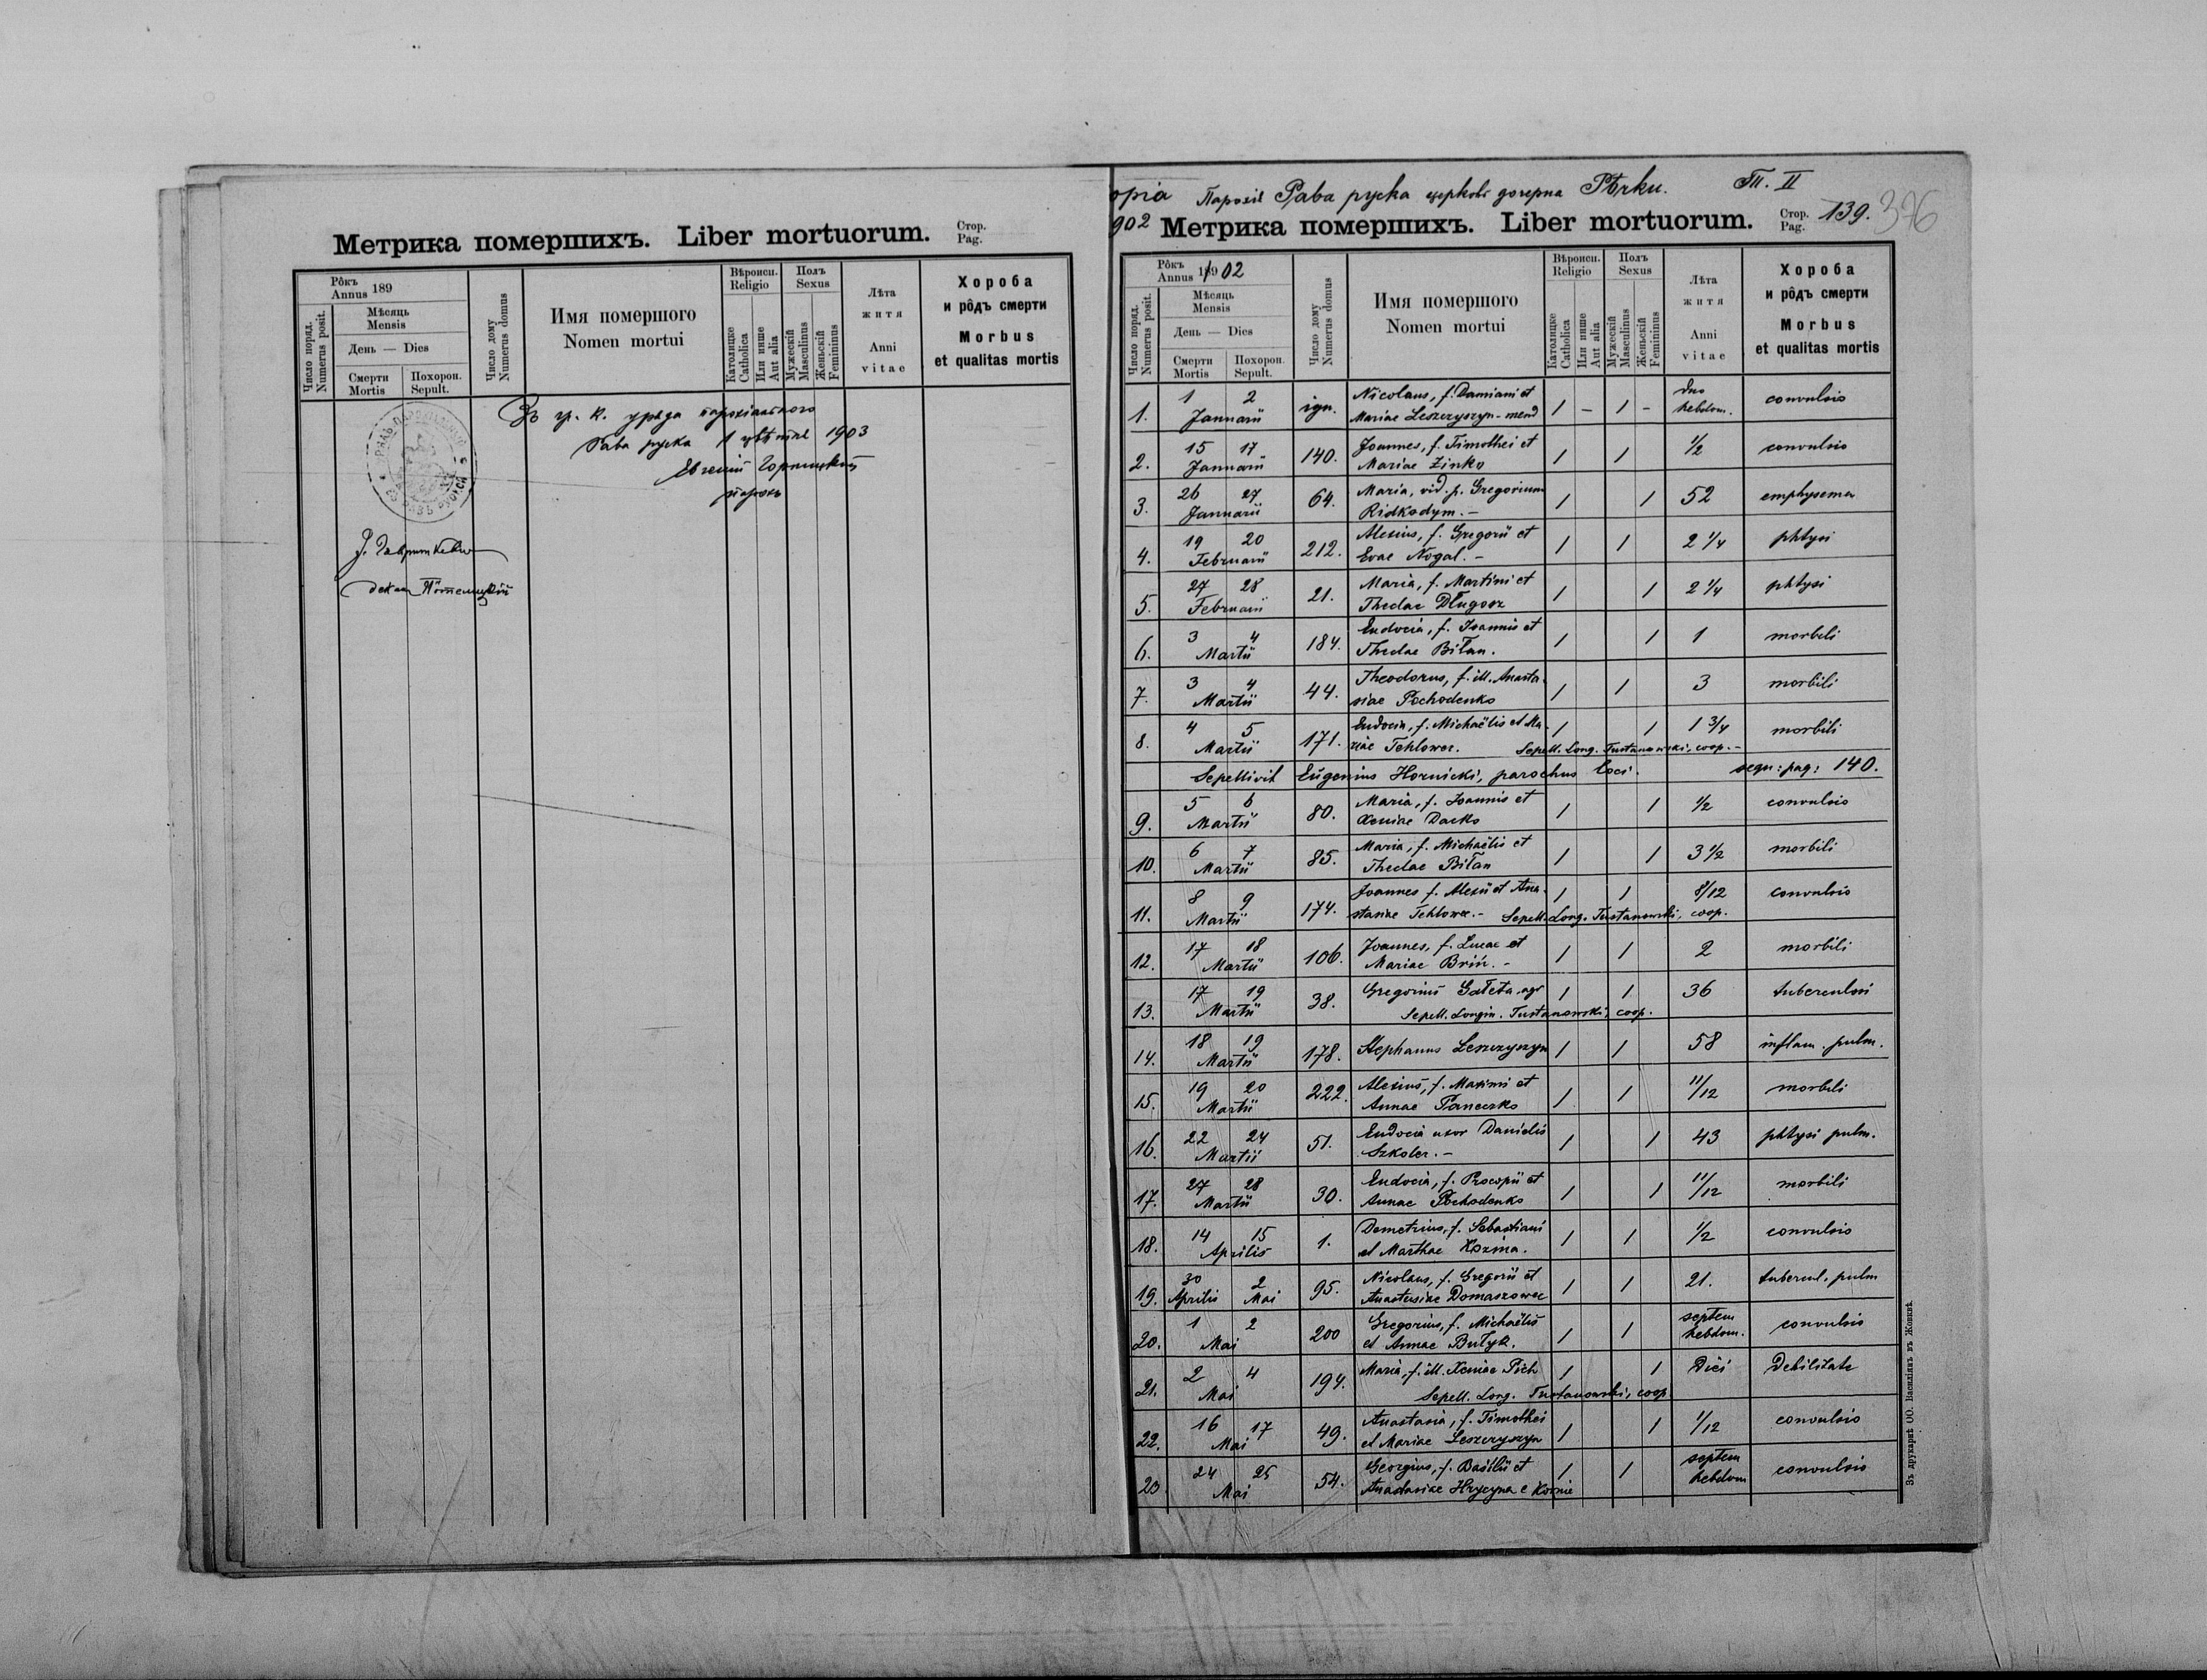 Метрика помершихъ. Liber mortuorum. Стор. Pag.
Рôкъ Annus 189
Мѣсяць Mensis
День — Dies
Число поряд. Numerus posit.
Смерти Mortis
Похорон. Sepult.
Число дому Numerus domus
Имя помершого Nomen mortui
Вѣроисп. Religio
Католицке Catholica
Или инше Aut alia
Полъ Sexus
Мужескій Masculinus
Женьскій Femininus
Лѣта житя Anni vitae
Хороба и рôдъ смерти Morbus et qualitas mortis
Зъ гр. к. уряда парохіяльного
Рава руска 1 цвѣтня 1903
Евгеній Горницкій
парохъ
декан
Парохія Рава руска церковь дочерна Рѣчки. Т. II
902 Метрика помершихъ. Liber mortuorum. Стор. Pag. 139. 376
Рôкъ Annus 1902
Мѣсяць Mensis
День — Dies
Число поряд. Numerus posit.
Смерти Mortis
Похорон. Sepult.
Число дому Numerus domus
Имя помершого Nomen mortui
Вѣроисп. Religio
Католицке Catholica
Или инше Aut alia
Полъ Sexus
Мужескій Masculinus
Женьскій Femininus
Лѣта житя Anni vitae
Хороба и рôдъ смерти Morbus et qualitas mortis
1. 1 2 Januarii ign. Nicolaus, f. Damiani et Mariae Leszczyszyn - mend 1 - 1 - duo hebdom. convulsio
2. 15 17 Januarii 140. Joannes, f. Timothei et Mariae Zinko 1 1 1/2 convulsio
3. 26 27 Januarii 64. Maria, vid. p. Gregorium Ridkodym. - 1 1 52 emphysema
4. 19 20 Februarii 212. Alexius, f. Gregorii et Evae Nogal. - 1 1 2 1/4 phtysi
5. 27 28 Februarii 21. Maria, f. Martini et Theclae Długosz 1 1 2 1/4 phtysi
6. 3 4 Martii 184. Eudocia, f. Joannis et Theclae Biłan. 1 1 1 morbili
7. 3 4 Martii 44. Theodorus, f. ill. Anastasiae Pochodenko 1 1 3 morbili
8. 4 5 Martii 171. Eudocia, f. Michaëlis et Mariae Tehlowec. 1 1 1 3/4 morbili
Sepell. Long. Tustanowski, coop. -
Sepelivit Eugenius Hornicki, parochus loci. sequ: pag: 140.
9. 5 6 Martii 80. Maria, f. Joannis et Xeniae Dacko 1 1 1/2 convulsio
10. 6 7 Martii 85. Maria, f. Michaëlis et Theclae Biłan 1 1 3 1/2 morbili
11. 8 9 Martii 174. Joannes f. Alexii et Anastasiae Tehlowec. - 1 1 8/12 convulsio
Sepell. Long. Tustanowski, coop.
12. 17 18 Martii 106. Joannes, f. Lucae et Mariae Briń. - 1 1 2 morbili
13. 17 19 Martii 38. Gregorius Gałeta, agr 1 1 36 tuberculosi
Sepell. Longin. Tustanowski, coop.
14. 18 19 Martii 178. Stephanus Leszczyszyn 1 1 58 inflam. pulm.
15. 19 20 Martii 222. Alexius, f. Maximi et Annae Paneczko 1 1 11/12 morbili
16. 22 24 Martii 51. Eudocia uxor Danielis Szkoler. - 1 1 43 phtysi pulm.
17. 27 28 Martii 30. Eudocia, f. Procopii et Annae Pochodenko 1 1 11/12 morbili
18. 14 15 Aprilis 1. Demetrius, f. Sebastiani et Marthae Kozina. 1 1 1/2 convulsio
19. 30 Aprilis 2 Mai 95. Nicolaus, f. Gregorii et Anastasiae Domaszowec 1 1 21. tubercul. pulm
20. 1 2 Mai 200 Gregorius, f. Michaëlis et Annae Bułyk. 1 1 septem hebdom. convulsio
21. 2 4 Mai 194. Maria, f. ill. Xeniae Pich 1 1 Diei Debilitate
Sepell. Long. Tustanowski, coop.
22. 16 17 Mai 49. Anastasia, f. Timothei et Mariae Leszczyszyn 1 1 1/12 convulsio
23 24 25 Mai 54. Georgius, f. Basilii et Anastasiae Hrycyna e Kornie 1 1 septem hebdom convulsio
Зъ друкарнѣ ОО. Василіянъ въ Жовквѣ.